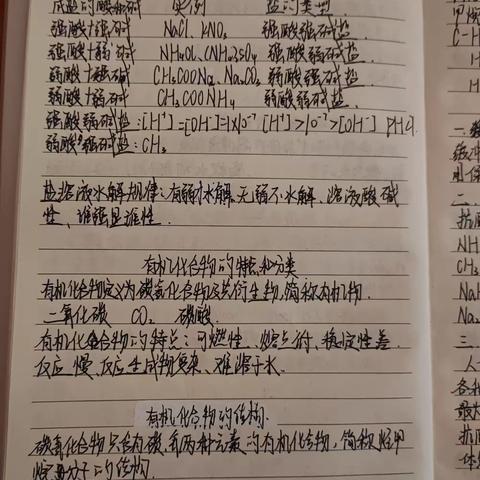 成盐的酸和碱 实例 盐的类型
强酸+强碱 NaCl、KNO₃ 强酸强碱盐
强酸+弱碱 NH₄Cl、(NH₄)₂SO₄ 强酸弱碱盐.
弱酸+强碱 CH₃COONa、Na₂CO₃ 弱酸强碱盐.
弱酸+弱碱 CH₃COONH₄ 弱酸弱碱盐.
强酸弱碱盐:[H⁺]=[OH⁻]=1×10⁻⁷ [H⁺]>10⁻⁷>[OH⁻] PH
弱酸 强碱盐: CH₃
盐溶液水解规律:有弱才水解、无弱不水解、溶液酸碱
性、谁强显谁性.
有机化合物的特点和分类
有机化合物定义为碳氢化合物及其衍生物,简称有机物.
二氧化碳 CO₂ 碳酸.
有机化合物的特点:可燃性、熔点 、稳定性差.
反应慢、反应生成物复杂、难溶于水.
有机化合物的结构.
碳氢化合物只含有碳、氢两种元素的有机化合物,简称烃甲
烷 分子的结构.
甲烷
C-H
H
H
一、
缓冲
用
二、
抗
NH
CH₃
NaH
Na₂
三、
人
各种
最大
抗
体